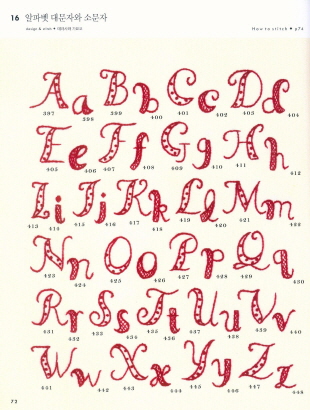 16 알파벳 대문자와 소문자
How to stitch • p72
Aa Bb Cc Dd
397 398 399 400 401 402 403 404
Ee Ff Gg Hh
405 406 407 408 409 410 411 412
Ii Jj Kk Ll Mm
413 414 415 416 417 418 419 420 421 422
Nn Oo Pp Qq
423 424 425 426 427 428 429 430
Rr Ss Tt Uu Vv
431 432 433 434 435 436 437 438 439 440
Ww Xx Yy Zz
441 442 443 444 445 446 447 448
72